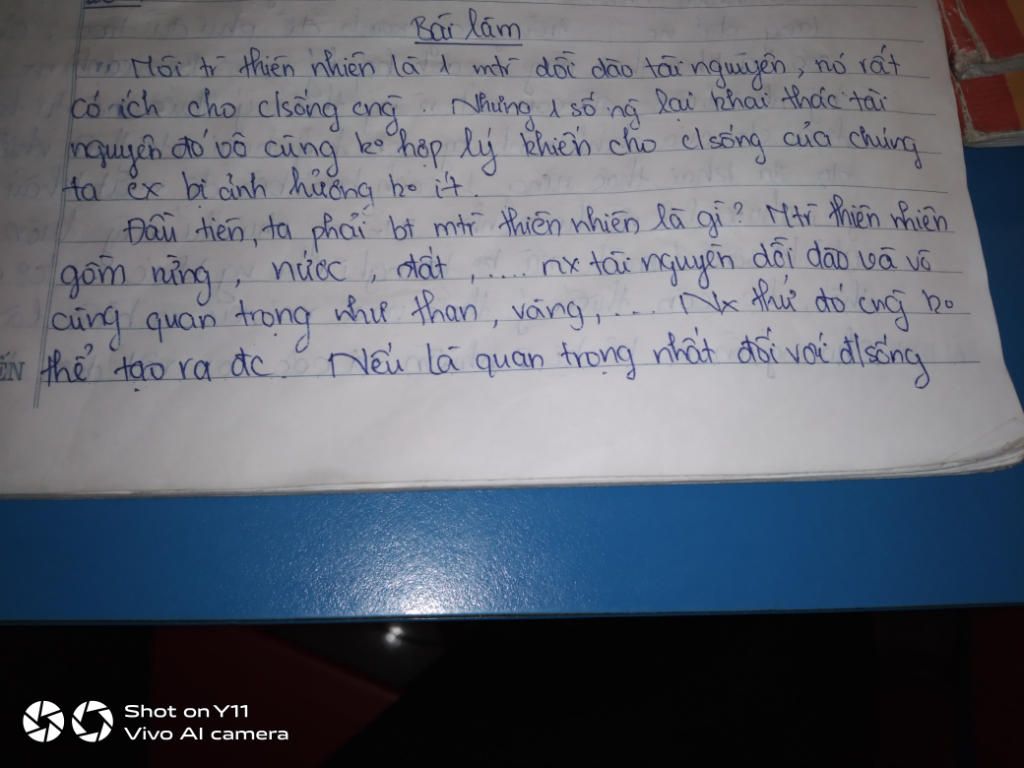 Bài làm
Môi tr thiên nhiên là 1 mtr dồi dào tài nguyên, nó rất
có ích cho c/sống cng. Nhưng 1 số ng lại khai thác tài
nguyên đó vô cùng ko hợp lý khiến cho c/sống của chúng
ta bị ảnh hưởng ko ít.
Đầu tiên, ta phải bt mtr thiên nhiên là gì? Mtr thiên nhiên
gồm rừng, nước, đất, ... nx tài nguyên dồi dào và vô
cùng quan trọng như than, vàng, ... Nx thứ đó cng ko
thể tạo ra đc. Nếu là quan trọng nhất đối với đ/sống
ỐN
Shot on Y11
Vivo AI camera